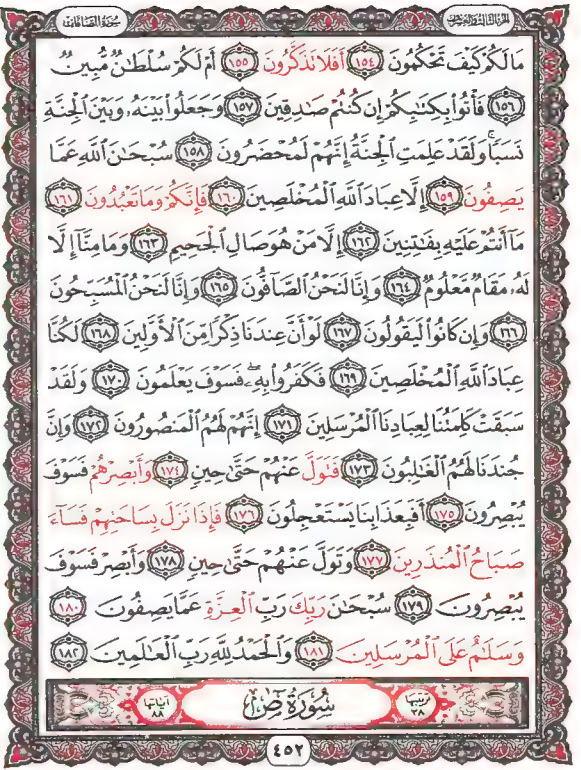 الجزء الثالث والعشرون
سورة الصافات
مَا لَكُمْ كَيْفَ تَحْكُمُونَ ١٥٤ أَفَلَا تَذَكَّرُونَ ١٥٥ أَمْ لَكُمْ سُلْطَـٰنٌ مُّبِينٌ
١٥٦ فَأْتُوا۟ بِكِتَـٰبِكُمْ إِن كُنتُمْ صَـٰدِقِينَ ١٥٧ وَجَعَلُوا۟ بَيْنَهُۥ وَبَيْنَ ٱلْجِنَّةِ
نَسَبًا ۚ وَلَقَدْ عَلِمَتِ ٱلْجِنَّةُ إِنَّهُمْ لَمُحْضَرُونَ ١٥٨ سُبْحَـٰنَ ٱللَّهِ عَمَّا
يَصِفُونَ ١٥٩ إِلَّا عِبَادَ ٱللَّهِ ٱلْمُخْلَصِينَ ١٦٠ فَإِنَّكُمْ وَمَا تَعْبُدُونَ ١٦١
مَآ أَنتُمْ عَلَيْهِ بِفَـٰتِنِينَ ١٦٢ إِلَّا مَنْ هُوَ صَالِ ٱلْجَحِيمِ ١٦٣ وَمَا مِنَّآ إِلَّا
لَهُۥ مَقَامٌ مَّعْلُومٌ ١٦٤ وَإِنَّا لَنَحْنُ ٱلصَّآفُّونَ ١٦٥ وَإِنَّا لَنَحْنُ ٱلْمُسَبِّحُونَ
١٦٦ وَإِن كَانُوا۟ لَيَقُولُونَ ١٦٧ لَوْ أَنَّ عِندَنَا ذِكْرًا مِّنَ ٱلْأَوَّلِينَ ١٦٨ لَكُنَّا
عِبَادَ ٱللَّهِ ٱلْمُخْلَصِينَ ١٦٩ فَكَفَرُوا۟ بِهِۦ ۖ فَسَوْفَ يَعْلَمُونَ ١٧٠ وَلَقَدْ
سَبَقَتْ كَلِمَتُنَا لِعِبَادِنَا ٱلْمُرْسَلِينَ ١٧١ إِنَّهُمْ لَهُمُ ٱلْمَنصُورُونَ ١٧٢ وَإِنَّ
جُندَنَا لَهُمُ ٱلْغَـٰلِبُونَ ١٧٣ فَتَوَلَّ عَنْهُمْ حَتَّىٰ حِينٍ ١٧٤ وَأَبْصِرْهُمْ فَسَوْفَ
يُبْصِرُونَ ١٧٥ أَفَبِعَذَابِنَا يَسْتَعْجِلُونَ ١٧٦ فَإِذَا نَزَلَ بِسَاحَتِهِمْ فَسَآءَ
صَبَاحُ ٱلْمُنذَرِينَ ١٧٧ وَتَوَلَّ عَنْهُمْ حَتَّىٰ حِينٍ ١٧٨ وَأَبْصِرْ فَسَوْفَ
يُبْصِرُونَ ١٧٩ سُبْحَـٰنَ رَبِّكَ رَبِّ ٱلْعِزَّةِ عَمَّا يَصِفُونَ ١٨٠
وَسَلَـٰمٌ عَلَى ٱلْمُرْسَلِينَ ١٨١ وَٱلْحَمْدُ لِلَّهِ رَبِّ ٱلْعَـٰلَمِينَ ١٨٢
ترتيبها ٣٨ سُورَةُ صٓ آياتها ٨٨
٤٥٢